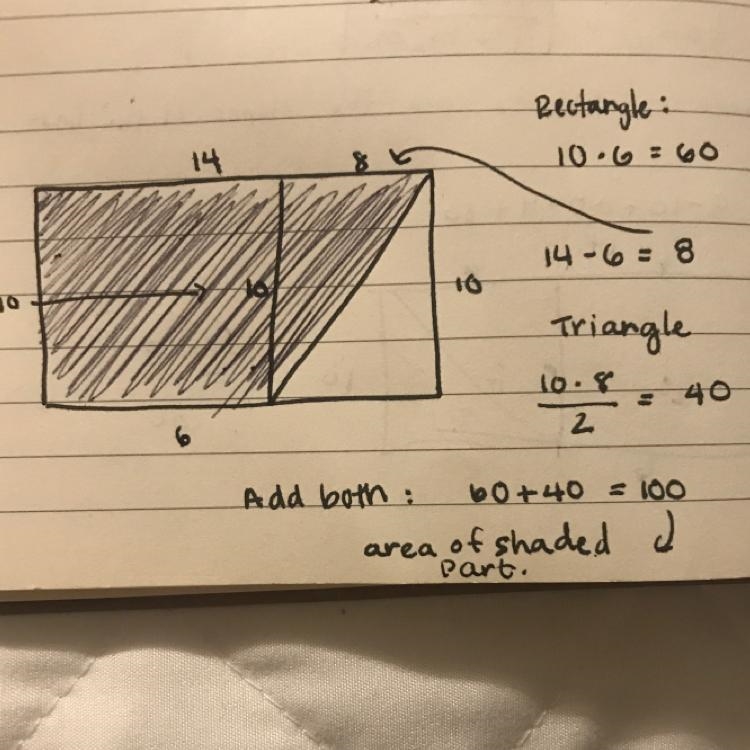 Rectangle:
10 · 6 = 60
14 8
14 - 6 = 8
10 10 10
Triangle
10 · 8
2
= 40
6
Add both: 60 + 40 = 100
area of shaded
part.